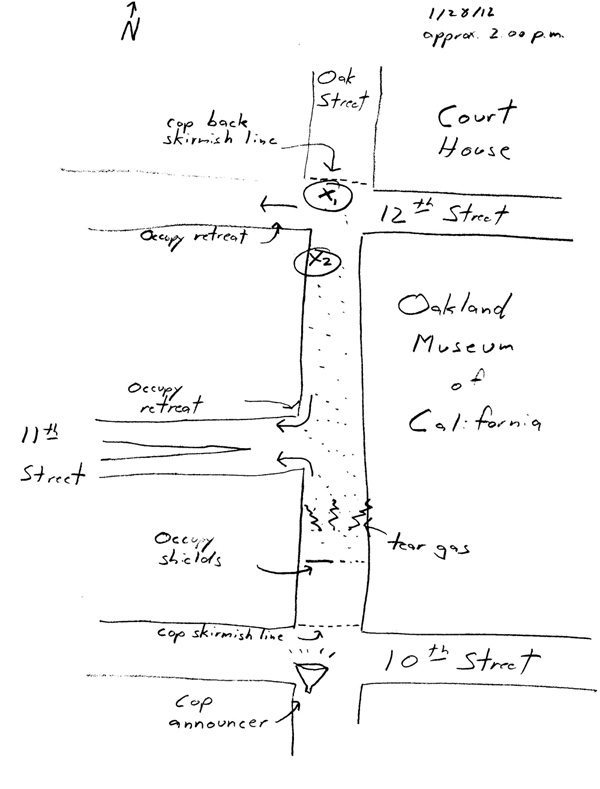 N
1/28/12
approx. 2.00 p.m.
Oak
Street
Court
House
cop back
skirmish line
X1
12th Street
Occupy retreat
X2
Oakland
Museum
of
California
Occupy
retreat
11th
Street
tear gas
Occupy
shields
Cop skirmish line
10th Street
Cop
announcer